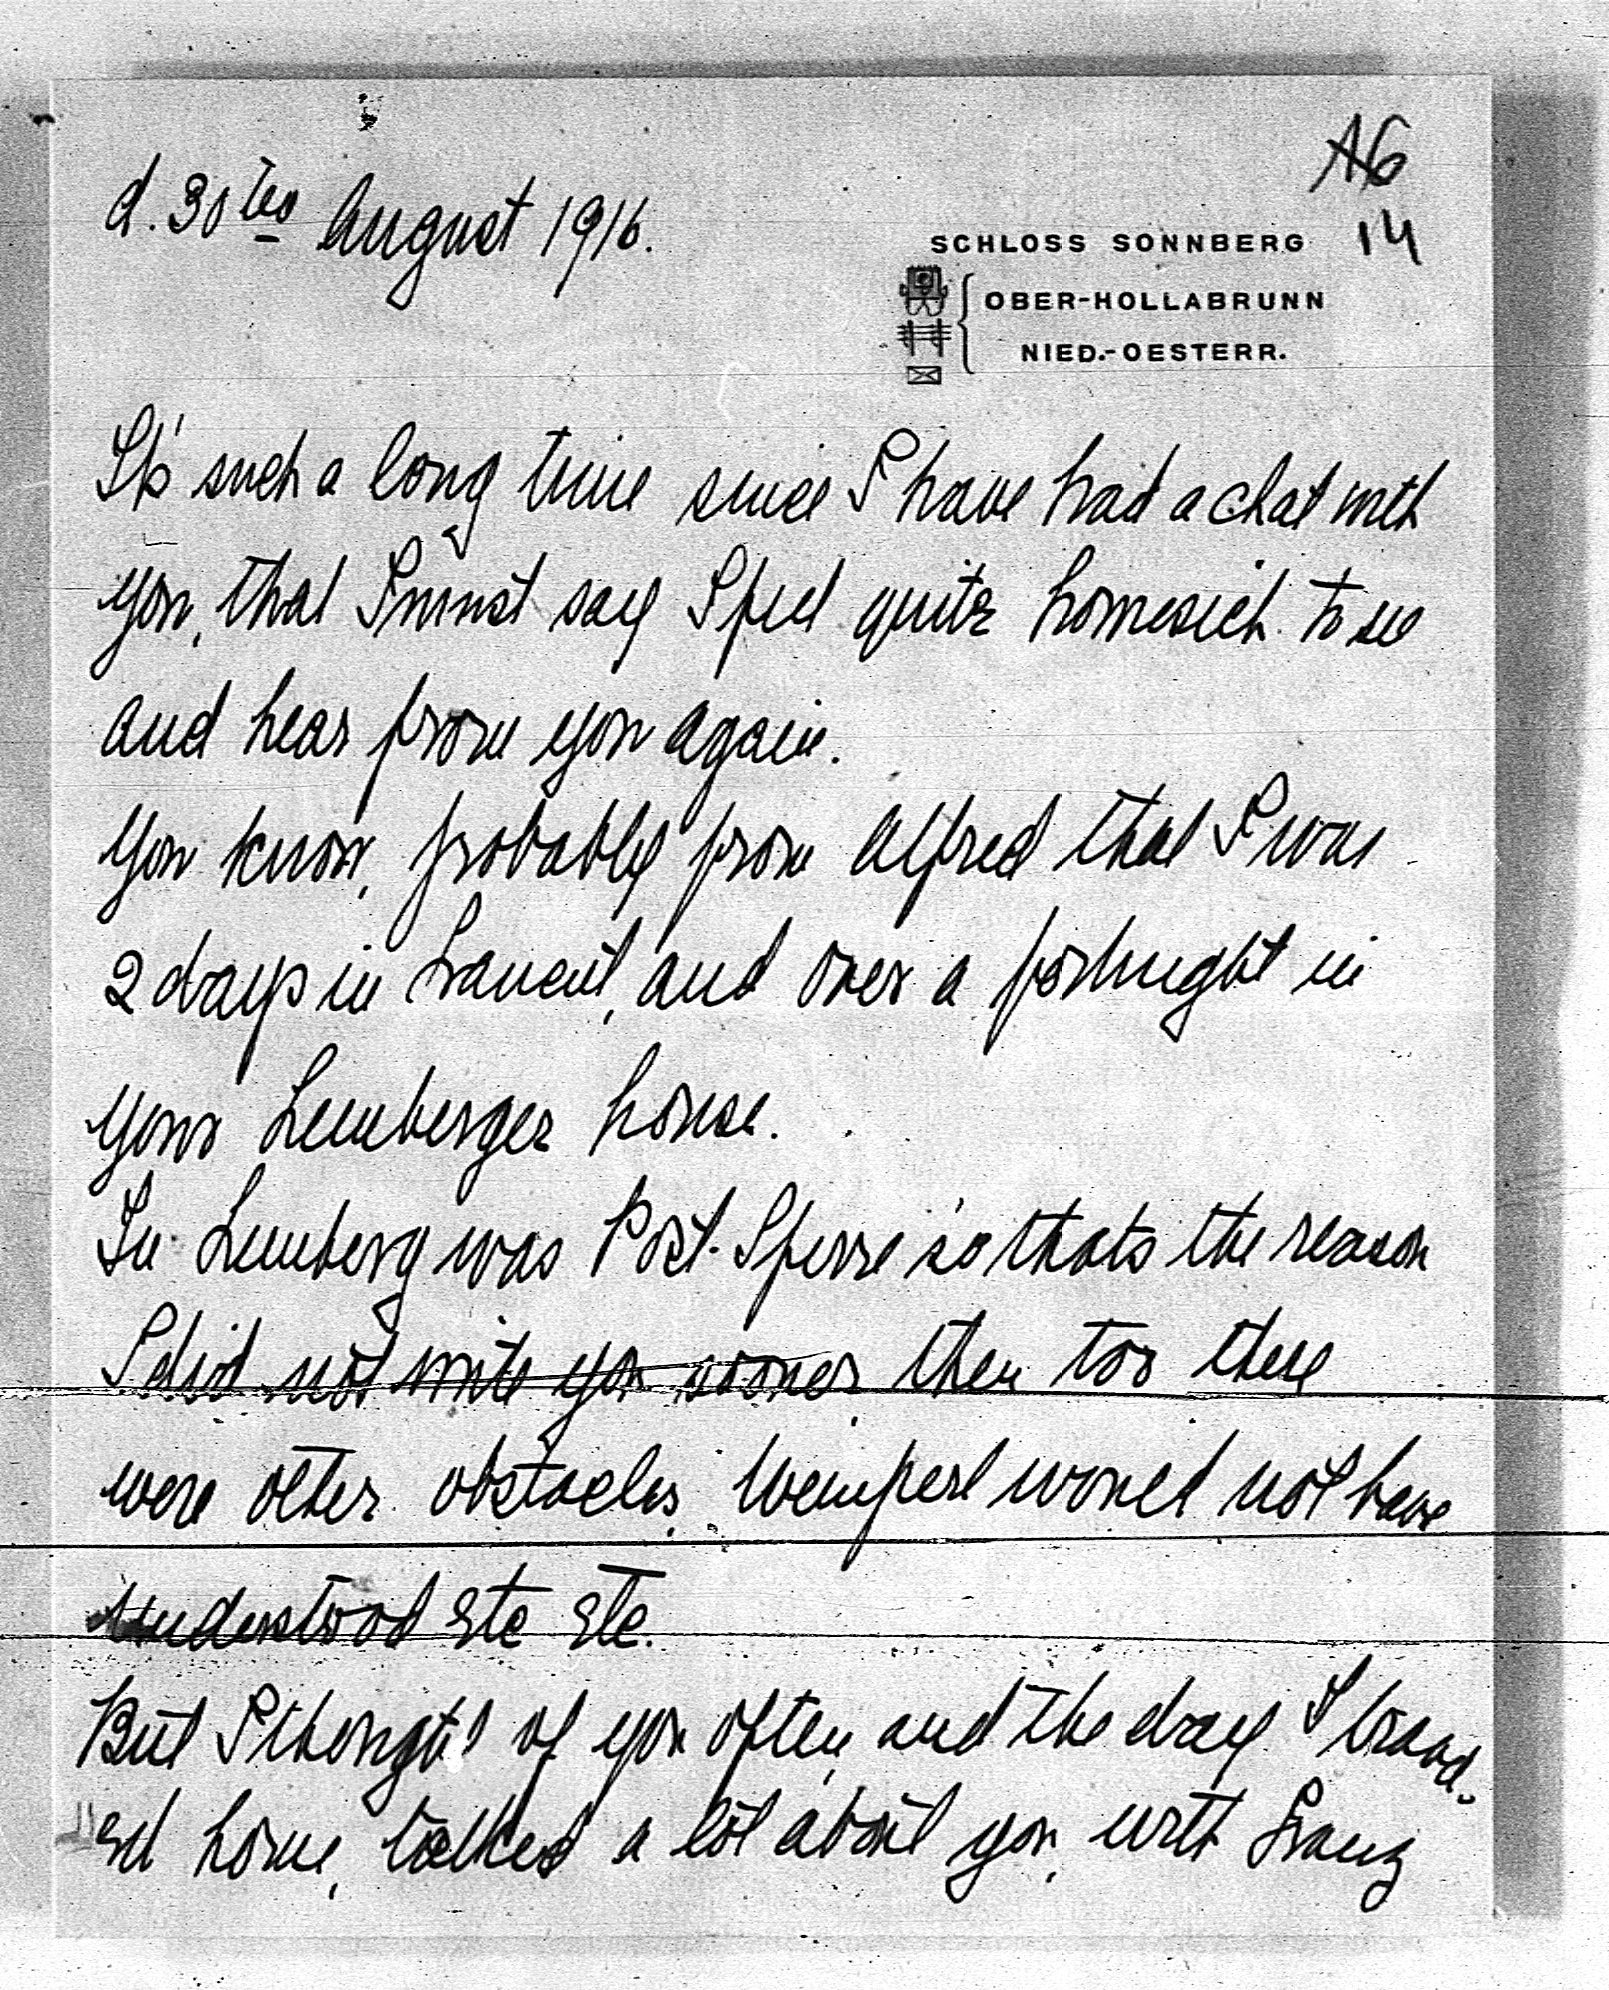 A6
14
d. 30tes August 1916.
SCHLOSS SONNBERG
OBER-HOLLABRUNN
NIED.-OESTERR.
It's such a long time since I have had a chat with
you, that I must say I feel quite homesick to see
and hear from you again.
You know, probably from Alfred that I was
2 days in Lancut, and over a fortnight in
your Lemberger house.
In Lemberg was Post-Sperre so thats the reason
I did not write you sooner, then too there
were other obstacles, would not have
understood etc etc.
But I thought of you often, and the day I travel-
ed home, talked a lot about you, with Franz